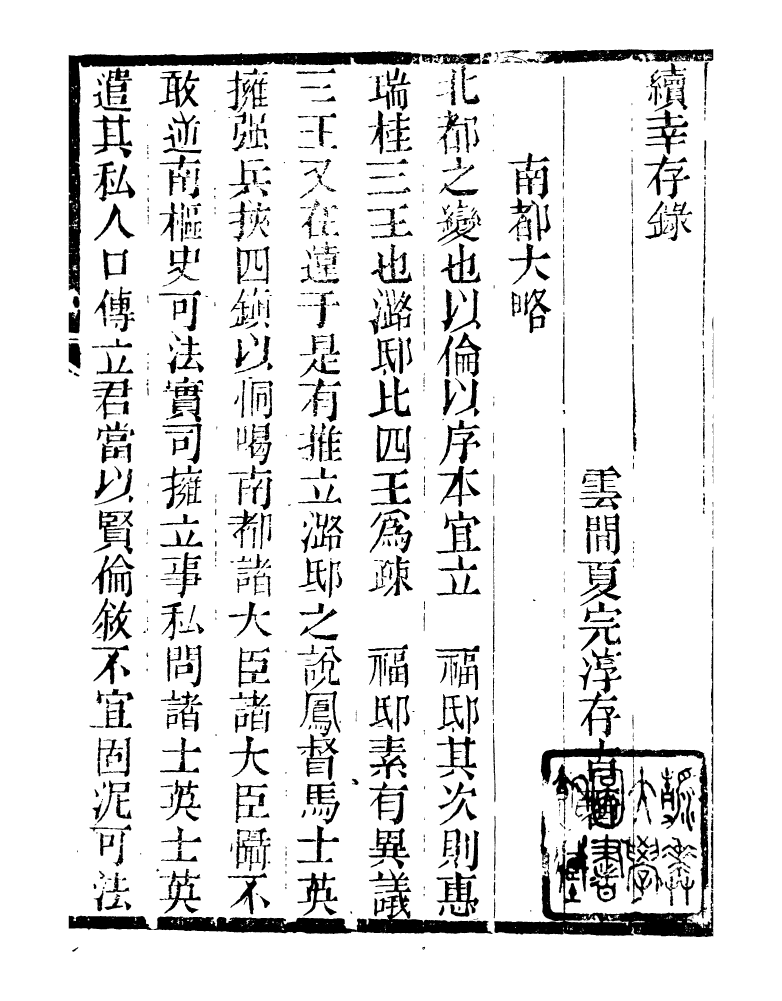 續幸存錄
雲間夏完淳存古
南都大略
北都之變也以倫以序本宜立　福邸其次則惠
瑞桂三王也潞邸比四王爲疎　福邸素有異議
三王又在遠于是有推立潞邸之說鳳督馬士英
擁强兵挾四鎮以恫喝南都諸大臣諸大臣懾不
敢逆南樞史可法實司擁立事私問諸士英士英
遣其私人口傳立君當以賢倫敘不宜固泥可法
燕京大學圖書館